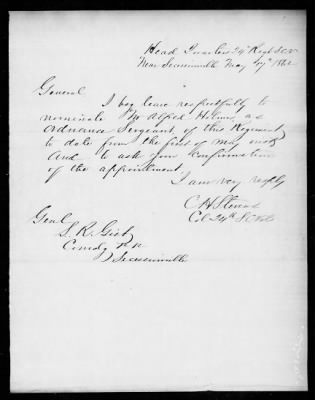 Head Quarters 24 Regt S.C.V
Near Secessionville May 7th 1862
General
I beg leave respectfully to
nominate Mr Alfred Holmes as
Ordnance Sergeant of this Regiment
to date from the first of May inst
And to ask your confirmation
of the appointment.
I am very respfly
C H Stevens
Col 24th S.C. Vols
Genl
S. R. Gist
Comdg
Secessionville